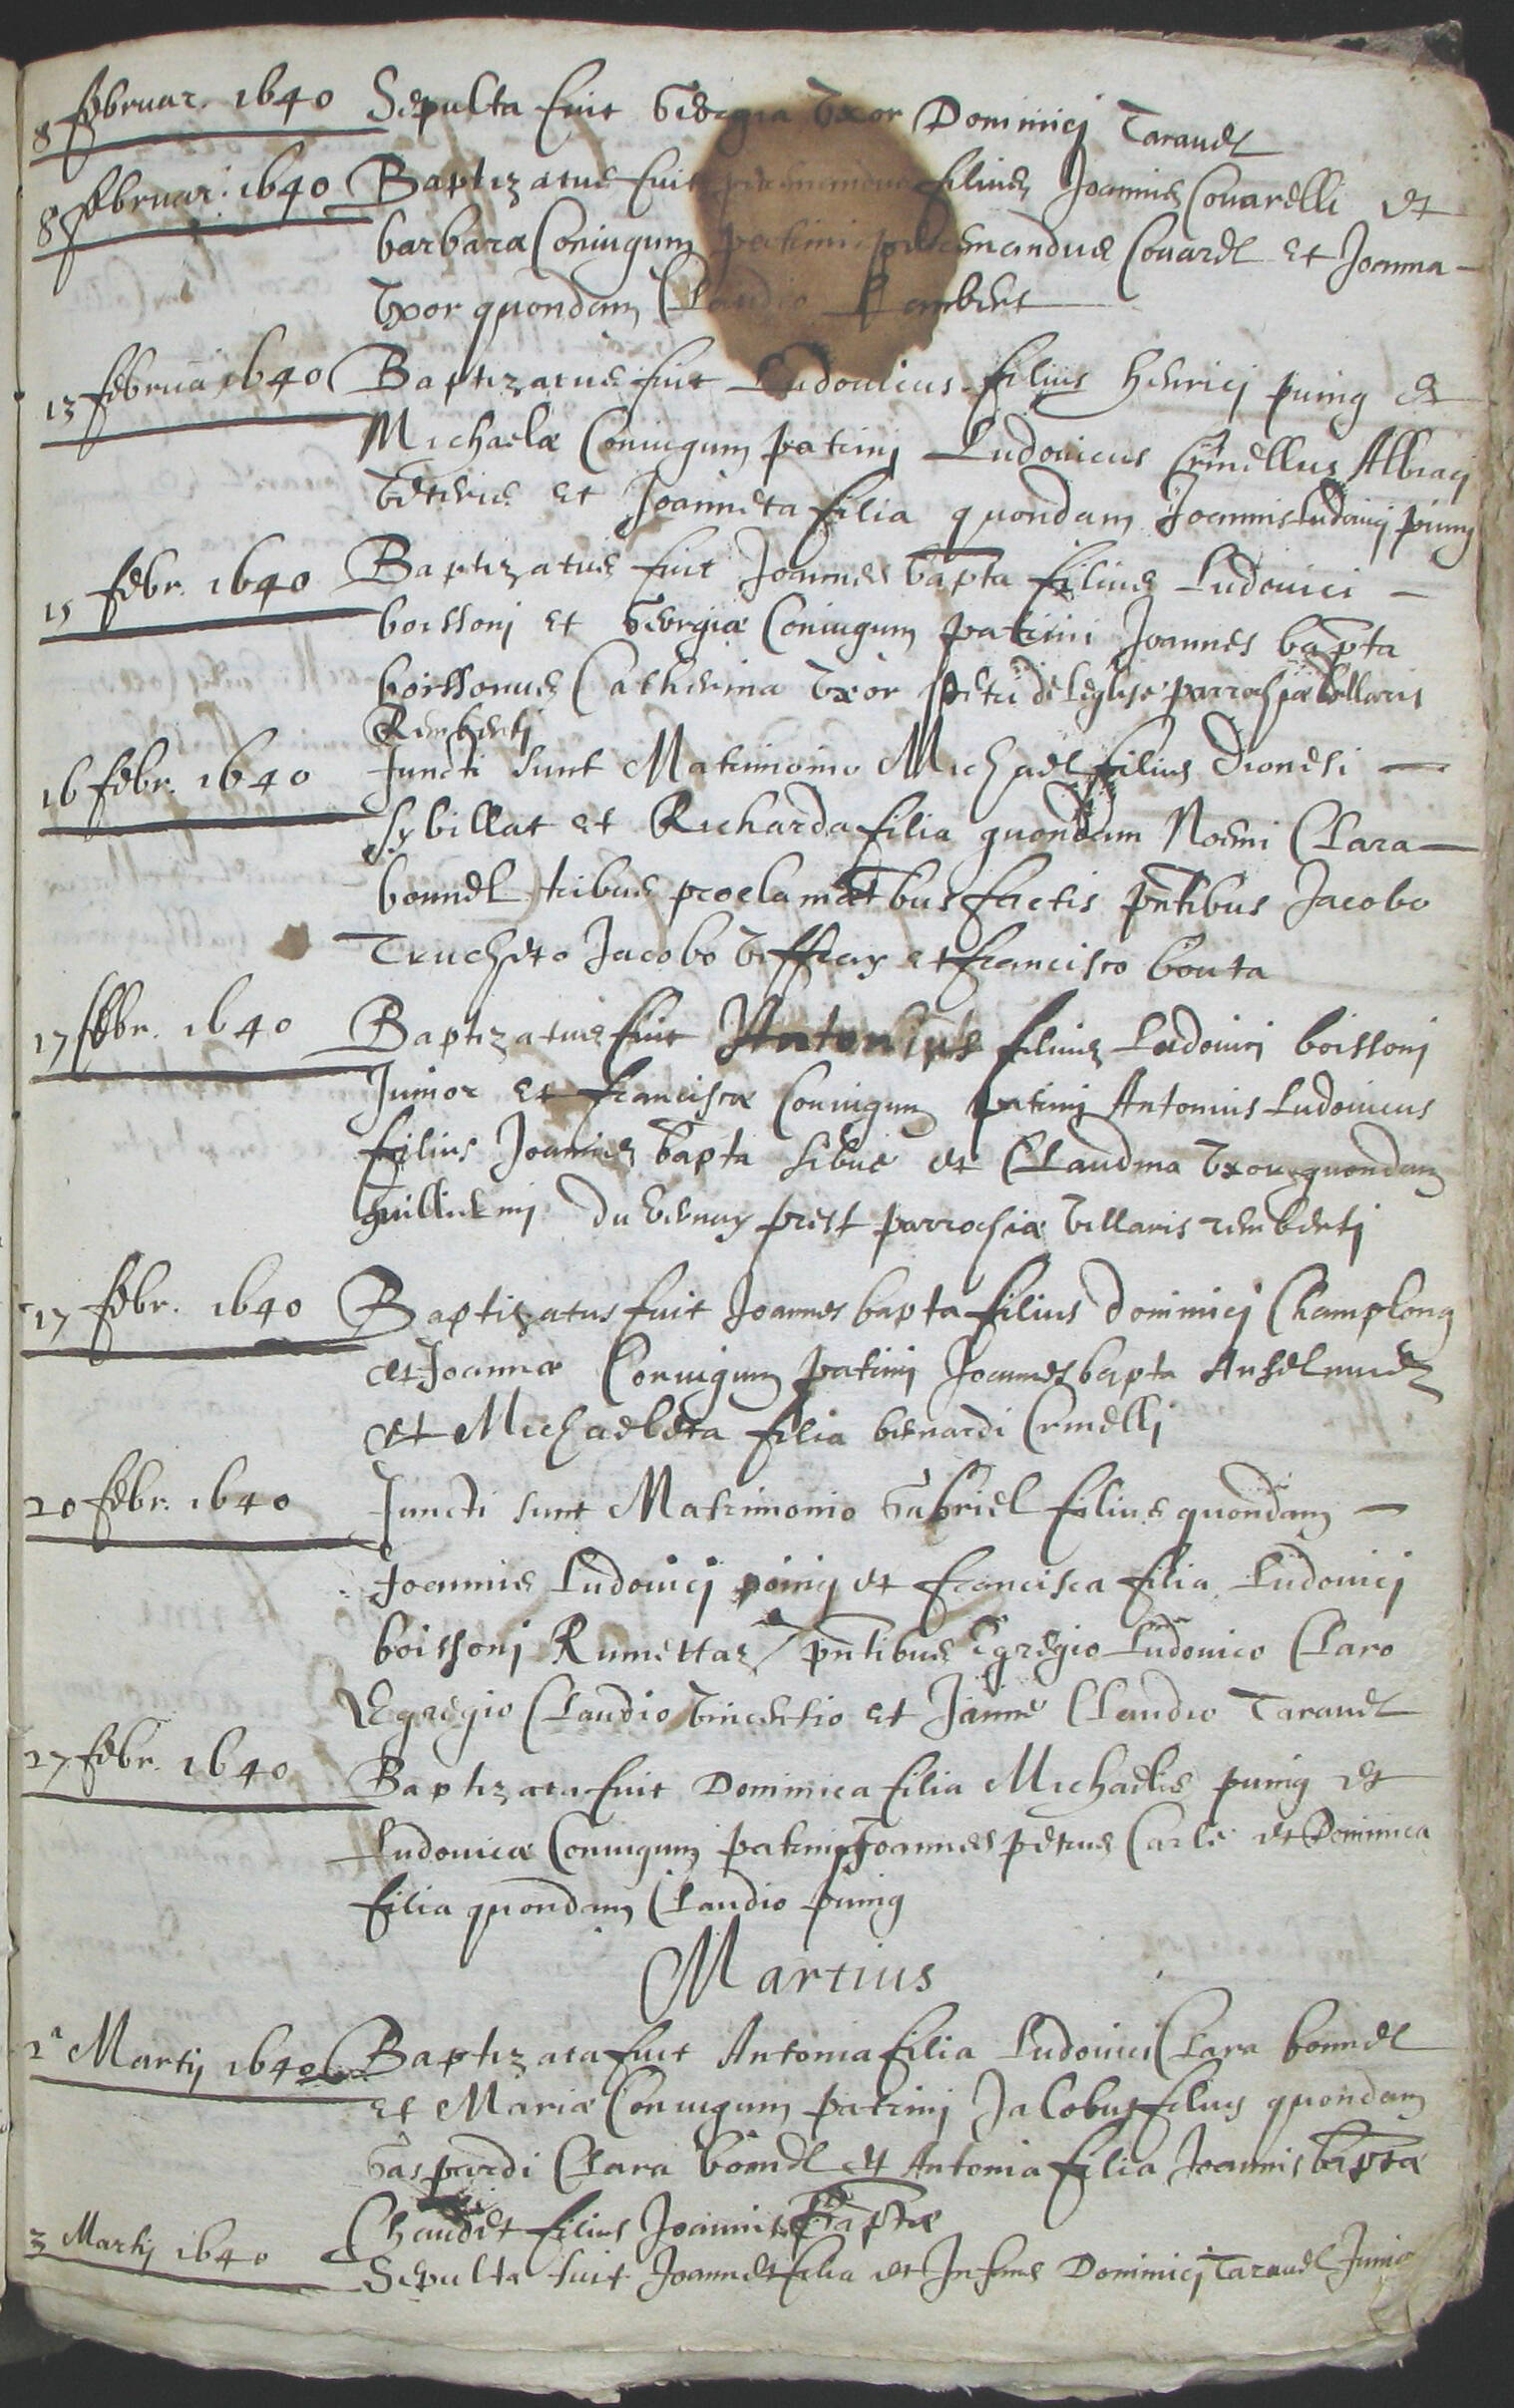 8 februar. 1640 Sepulta fuit Georgia Vxor Dominicj Taravel
8 februar. 1640 Baptizatus fuit filius Joannis Couarelli et
barbara Coniugum patrini Couarel et Joanna
Vxor quondam Claudio Rambert
13 februa 1640 Baptizatus fuit Ludouicus filius henricj puing et
Michaelæ Coniugum patrinj Ludouicus Crinellus Albiacj
Veteris et Joanneta filia quondam Joannis Ludouicj puing
15 febr. 1640 Baptizatus fuit Joannes bapta filius Ludouici
boissonj et Georgiæ Coniugum patrini Joannes bapta
boissonus Catherina Vxor petri de leglise parrochiæ Villaris
Rembertj
16 febr. 1640 Juncti sunt Matrimonio Michael filius Dionesi
Sybillat et Richarda filia quondam Noemi Clara
bonnel tribus proclamatbus factis pntibus Jacobo
Trucheto Jacobo Veffray et francisco bouta
17 febr. 1640 Baptizatus fuit Antonius filius Ludouicj boissonj
Junior et franciscæ Coniugum patrinj Antonius Ludouicus
filius Joannis bapta Sibue et Claudina Vxor quondam
guillielmj du Vernay prest parrochiæ Villaris rembertj
17 febr. 1640 Baptizatus fuit Joannes bapta filius dominicj Champlong
et Joannæ Coniugum patrinj Joannes bapta Anselmus
et Michaeleta filia bernardi Crinellj
20 febr. 1640 Juncti sunt Matrimonio Gabriel filius quondam
Joannis Ludouicj poing et francisca filia Ludouicj
boissonj Rumettaz pntibus Egregio Ludouico Claro
Egregio Claudio Vincentio et Janne Claudio Taravel
27 febr. 1640 Baptizata fuit Dominica filia Michaelis puing et
Ludouicæ Coniugum patrinj Joannes petrus Carle et Dominica
filia quondam Claudio puing
Martius
2a Martij 1640 Baptizata fuit Antonia filia Ludouici Clara bonnel
et Mariæ Coniugum patrinj Jacobus filius quondam
Gaspardi Clara bonnel et Antonia filia Joannis baptæ
Chaudet filius Joannis baptæ
3 Martij 1640 Sepulta fuit Joannet filia et Infans Dominicj Taravel Junior